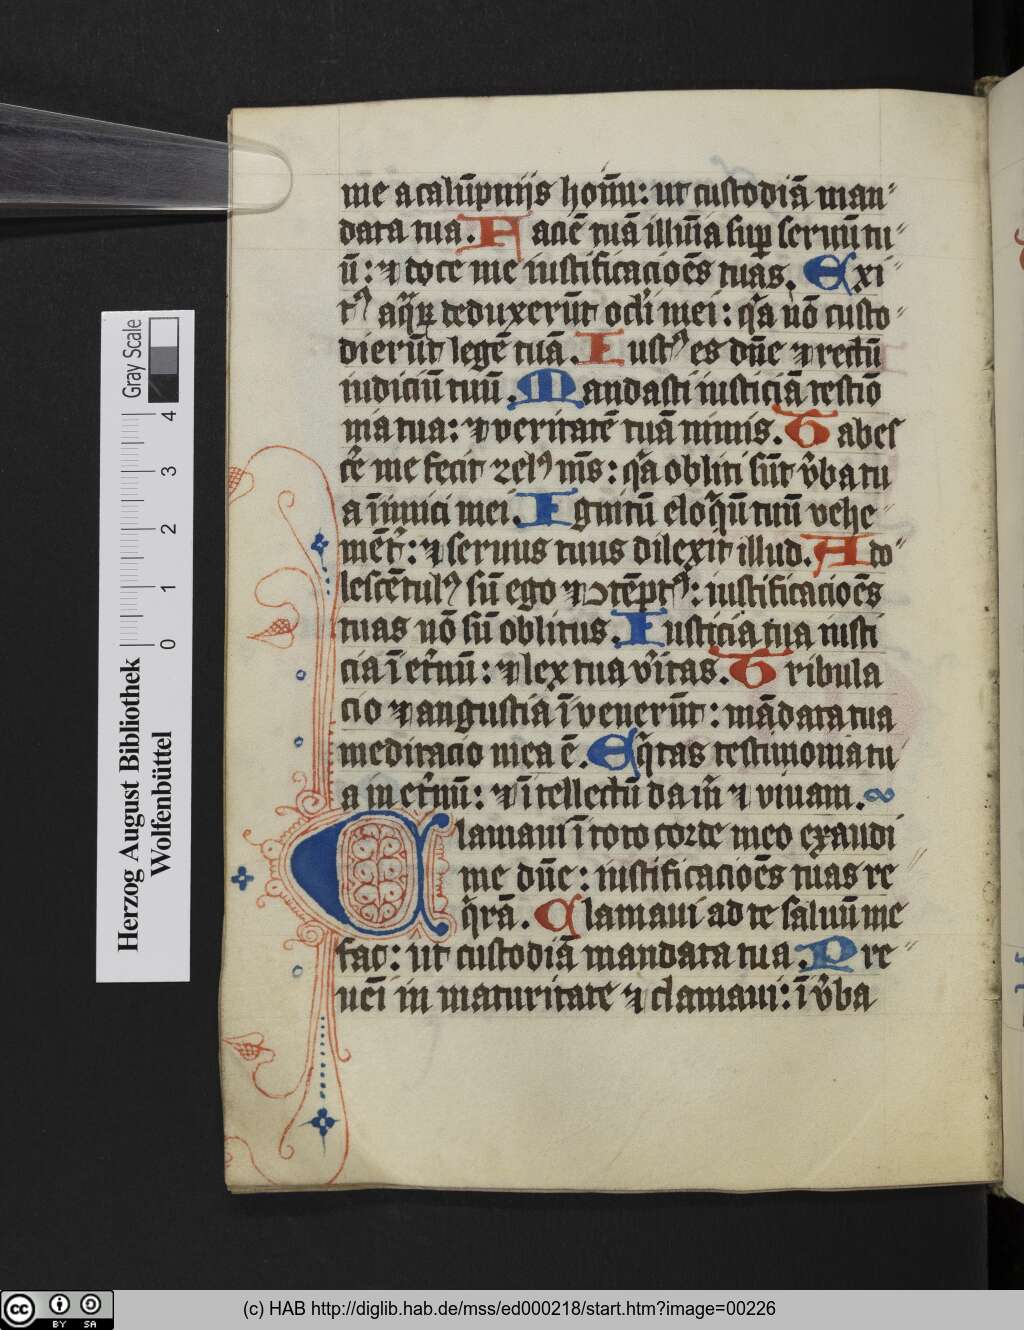 me a calūpnijs hom̄u: ut custodiā man
data tua. Faciē tuā illūia suꝑ seruū tu
ū: ⁊ doce me iustificacioēs tuas. Exi
tꝰ aq̄ꝝ deduxerūt ocl̓i mei: qͣa nō custo
dierūt legē tuā. Iustꝰ es dn̄e ⁊ rectū
iudiciū tuū. Mandasti iusticiā testiō
nia tua: ⁊ veritatē tuā nimis. Tabes
c̓e me fecit zelꝰ m̄s: qͣa obliti sūt v̓ba tu
a īimici mei. Ignitū eloqͥū tuū vehe
mēt̓: ⁊ seruus tuus dilexit illud. Ado
lescētulꝰ sū ego ⁊ ꝯtēptꝰ: iustificacioēs
tuas nō sū oblitus. Iusticia tua iusti
cia ī et̓nū: ⁊ lex tua v̓itas. Tribula
cio ⁊ angustia īvenerūt: mādata tua
meditacio mea ē. Eqͥtas testimonia tu
a in et̓nū: ⁊ ītellectū da m̓ ⁊ viuam.
Clamaui ī toto corde meo exaudi
me dn̄e: iustificacioēs tuas re
qͥrā. Clamaui ad te saluū me
fac: ut custodiā mandata tua. Pre
uēi in maturitate ⁊ clamaui: ī v̓ba
Gray Scale
0 1 2 3 4
Herzog August Bibliothek
Wolfenbüttel
cc BY SA
(c) HAB http://diglib.hab.de/mss/ed000218/start.htm?image=00226